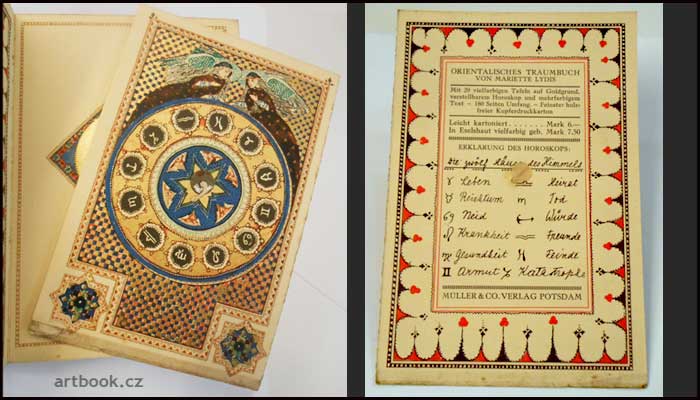 ORIENTALISCHES TRAUMBUCH
VON MARIETTE LYDIS
Mit 20 vielfarbigen Tafeln auf Goldgrund,
verstellbarem Horoskop und mehrfarbigem
Text – 180 Seiten Umfang. – Feinster holz-
freier Kupferdruckkarton
Leicht kartoniert . . . . . . . Mark 6.—
In Eselshaut vielfarbig geb. Mark 7,50
ERKLÄRUNG DES HOROSKOPS:
Die zwölf des Himmels
♈ Leben ♎ Heirat
♉ Reichtum ♏ Tod
♋ Neid ♐ Würde
♌ Krankheit ♒ Freunde
♍ Gesundheit ♓ Feinde
♊ Armut ♑ Katastrophe
MULLER & CO. VERLAG POTSDAM
artbook.cz